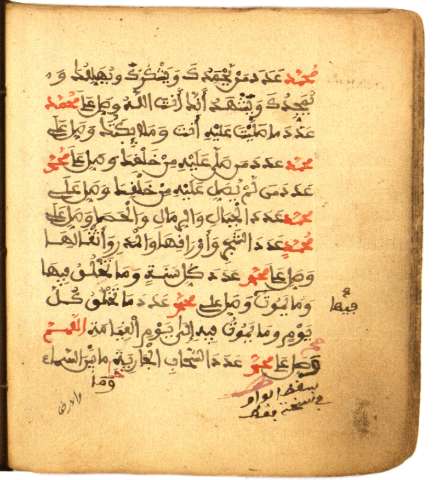 محمد عدد من يحمدك ويشكرك ويهللك و
يمجدك ويشهد أنك أنت الله وصل على محمد
عدد ما صليت عليه أنت وملائكتك وصل على
محمد عدد من صلى عليه من خلقك وصل على محمد
عدد من لم يصل عليه من خلقك وصل على
محمد عدد الجبال والرمال والحصى وصل على
محمد عدد الشجر وأوراقها والمدر وأثقالها
وصل على محمد عدد كل سنة وما تخلق فيها
وما يموت وصل على محمد عدد ما تخلق كل
فيها
يوم وما يموت فيه إلى يوم القيامة اللهم
وصل على محمد عدد السحاب الجارية ما بين السماء
وما
سقط الواو